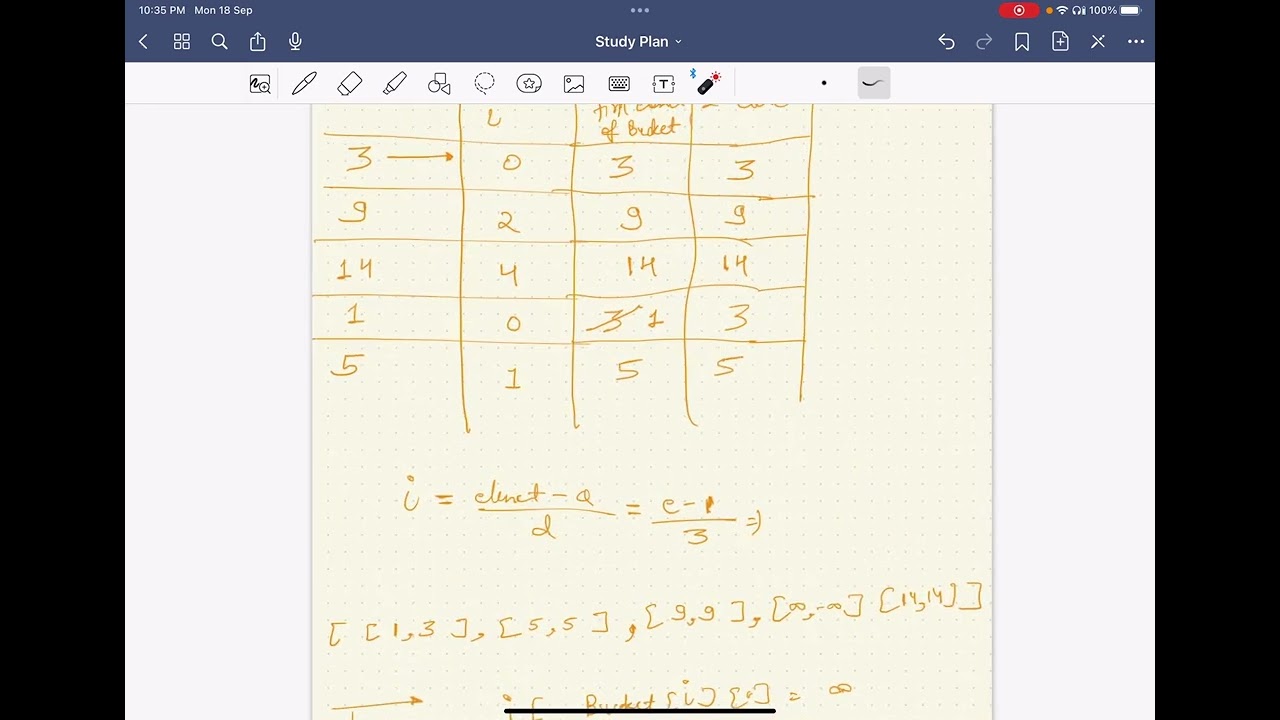 10:35 PM Mon 18 Sep 100%
Study Plan
i
of Bucket
3 → 0 3 3
9 2 9 9
14 4 14 14
1 0 3 1 3
5 1 5 5
i = - a / d = e - 1 / 3 ⇒
[ [ 1,3 ], [ 5,5 ] , [ 9,9 ], [∞,-∞] [14,14] ]
Bucket [i] = ∞